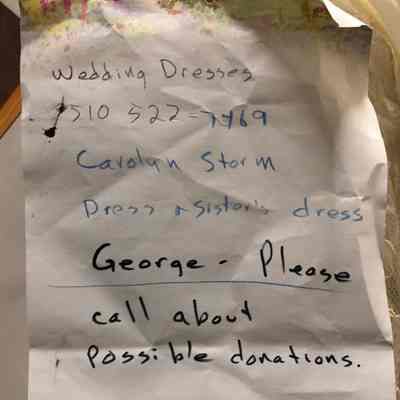 Wedding Dresses
510 522-7769
Carolyn Storm
Dress & Sister's dress
George - Please
call about
possible donations.